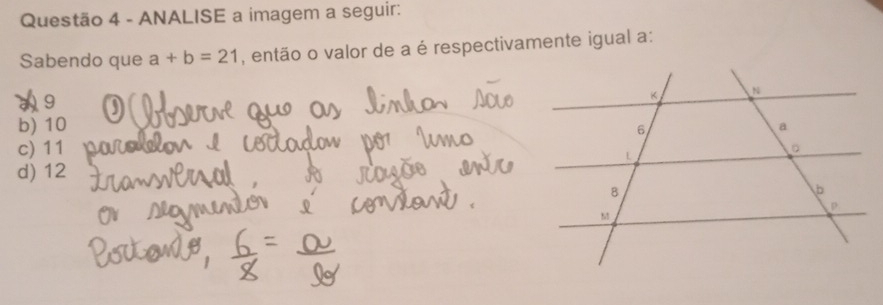 Questão 4 - ANALISE a imagem a seguir:
Sabendo que a + b = 21, então o valor de a é respectivamente igual a:
a) 9
b) 10
c) 11
d) 12
① Observe que as linhas são
paralelas e cortadas por uma
transversal. A razão entre
os segmentos é constante.
Portanto, 6/8 = a/b
K
N
6
a
L
O
8
b
M
P